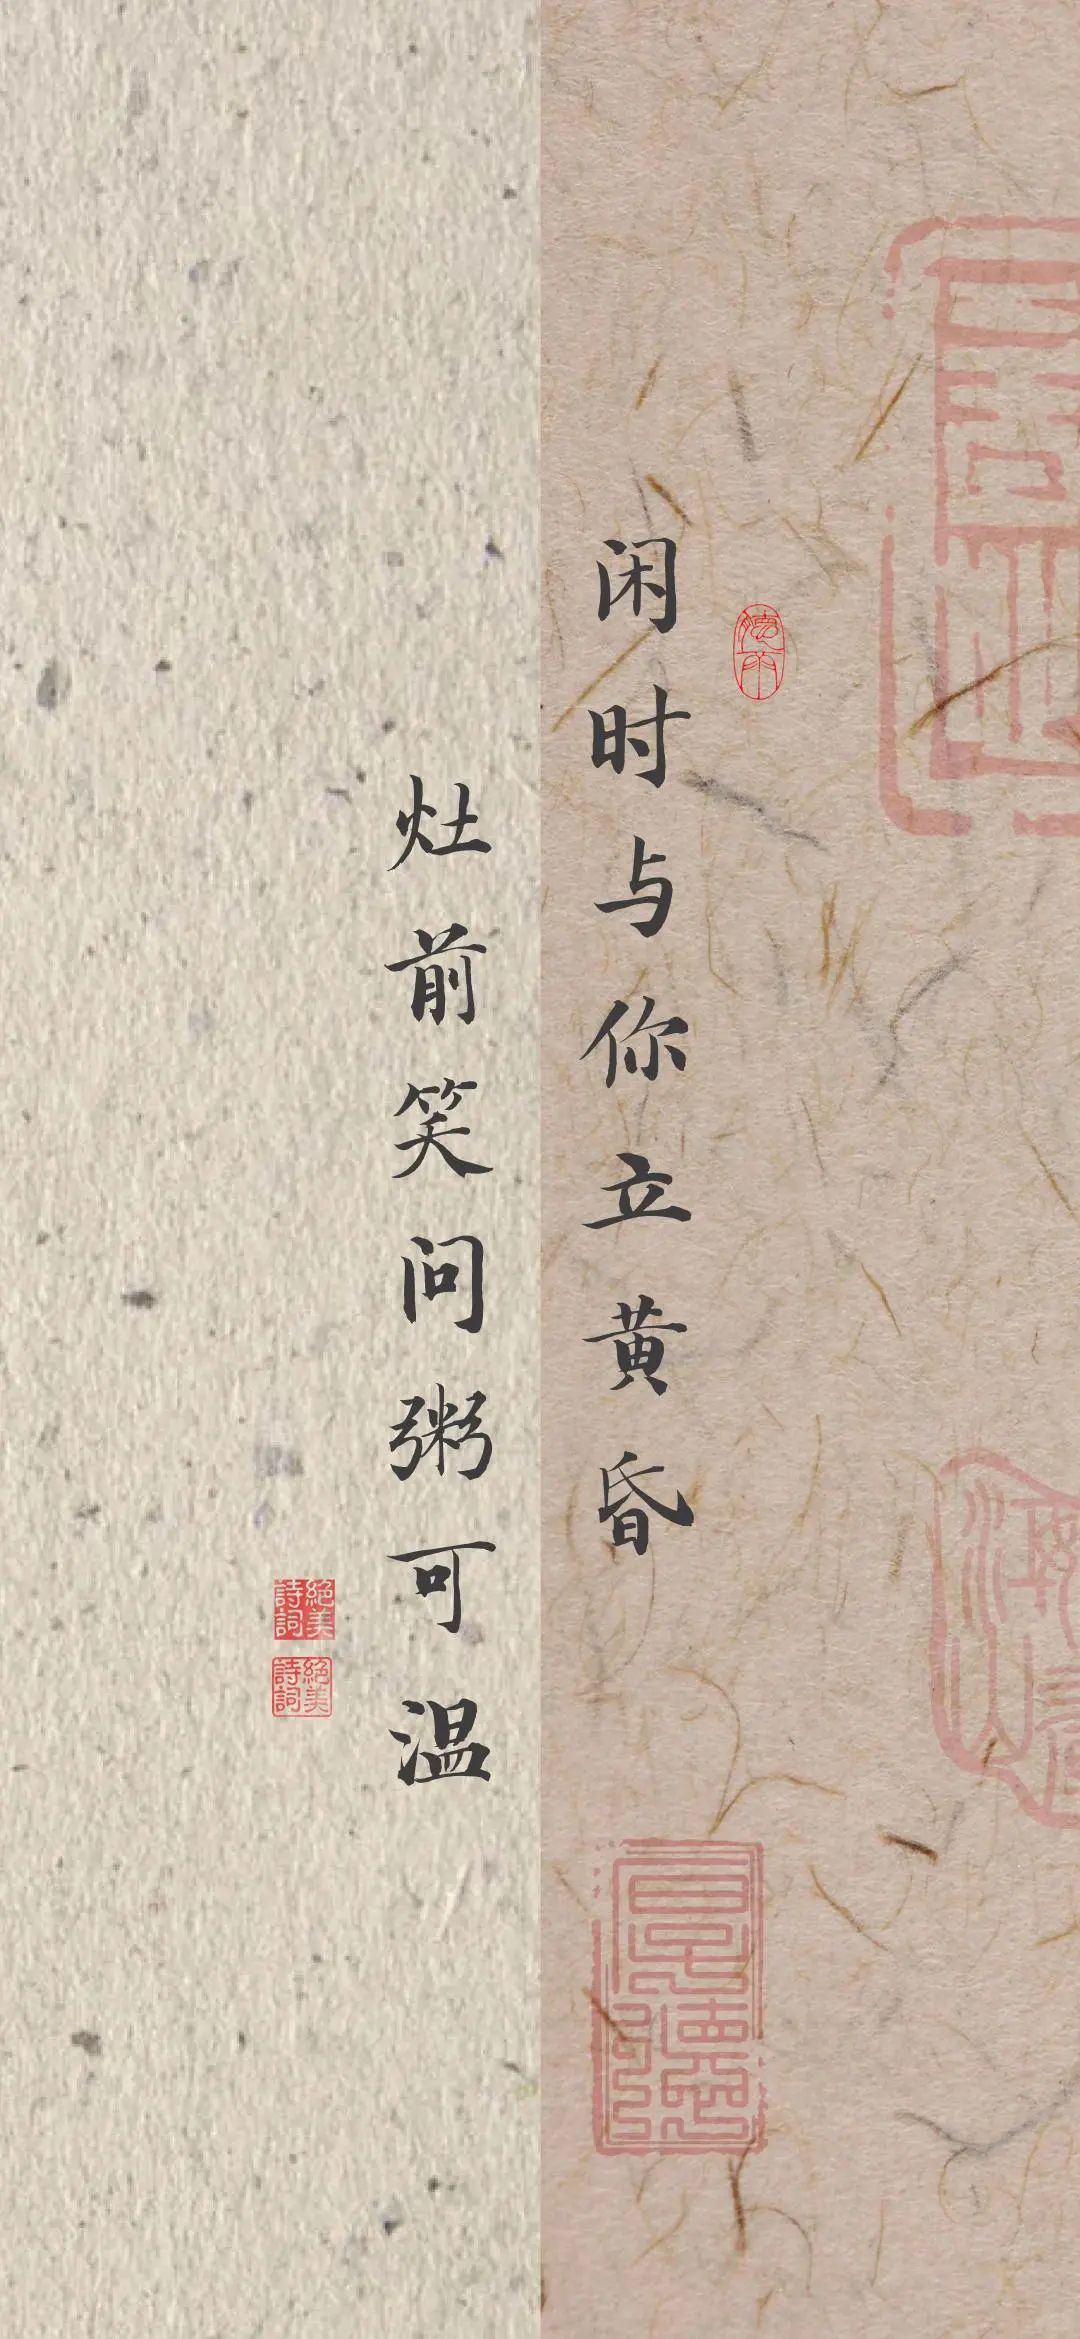 闲时与你立黄昏
灶前笑问粥可温
絕美詩詞
絕美詩詞